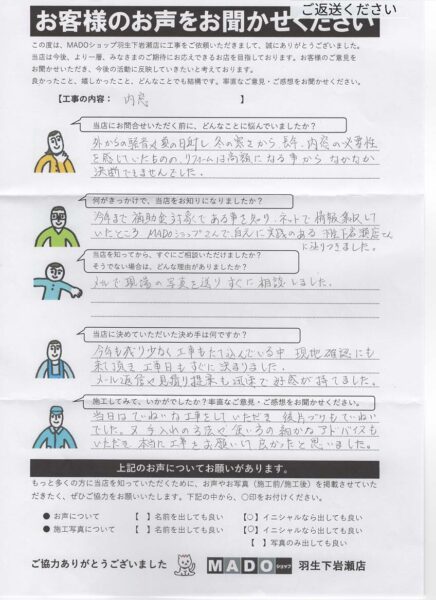 ご返送ください
お客様のお声をお聞かせください
この度は、MADOショップ羽生下岩瀬店に工事をご依頼いただきまして、誠にありがとうございました。
当店は今後、より一層、みなさまのご期待にお応えできるお店を目指しております。お客様のご意見を
お聞かせいただき、今後の活動に反映していきたいと考えております。
良かったこと、嬉しかったこと、どんなことでも結構です。率直なご意見・ご感想をお聞かせください。
【工事の内容： 内窓 】
当店にお問合せいただく前に、どんなことに悩んでいましたか？
外からの騒音や夏の日射し 冬の寒さから 長年 内窓の必要性
を感じていたものの、リフォームは高額になる事から なかなか
決断できませんでした。
何がきっかけで、当店をお知りになりましたか？
今年まで補助金対象である事を知り、ネットで情報集収して
いたところ MADOショップさんで、自元に実績のある 羽生下岩瀬店さん
に辿りつきました。
当店を知ってから、すぐにご相談いただけましたか？
そうでない場合は、どんな理由がありましたか？
メールで現場の写真を送り すぐに相談しました。
当店に決めていただいた決め手は何ですか？
今年も残り少なく工事もたて込んでいる中 現地確認にも
来て頂き 工事日もすぐに決まりました。
メール返信や見積り提案も迅速で好感が持てました。
施工してみて、いかがでしたか？率直なご意見・ご感想をお聞かせください。
当日はていねいな工事をしていただき 後片づけもていねい
でした。又 手入れの方法や使い方の細かなアドバイスも
いただき 本当に工事をお願いして良かったと思いました。
上記のお声についてお願いがあります。
もっと多くの方に当店を知っていただくために、お声やお写真（施工前/施工後）を掲載させていた
だきたく、ぜひご協力をお願いいたします。下記の中から、〇印をお付けください。
● お声について 【 】名前を出しても良い 【〇】イニシャルなら出しても良い
● 施工写真について 【 】名前を出しても良い 【〇】イニシャルなら出しても良い
【 】写真のみ出しても良い
ご協力ありがとうございました MADOショップ 羽生下岩瀬店